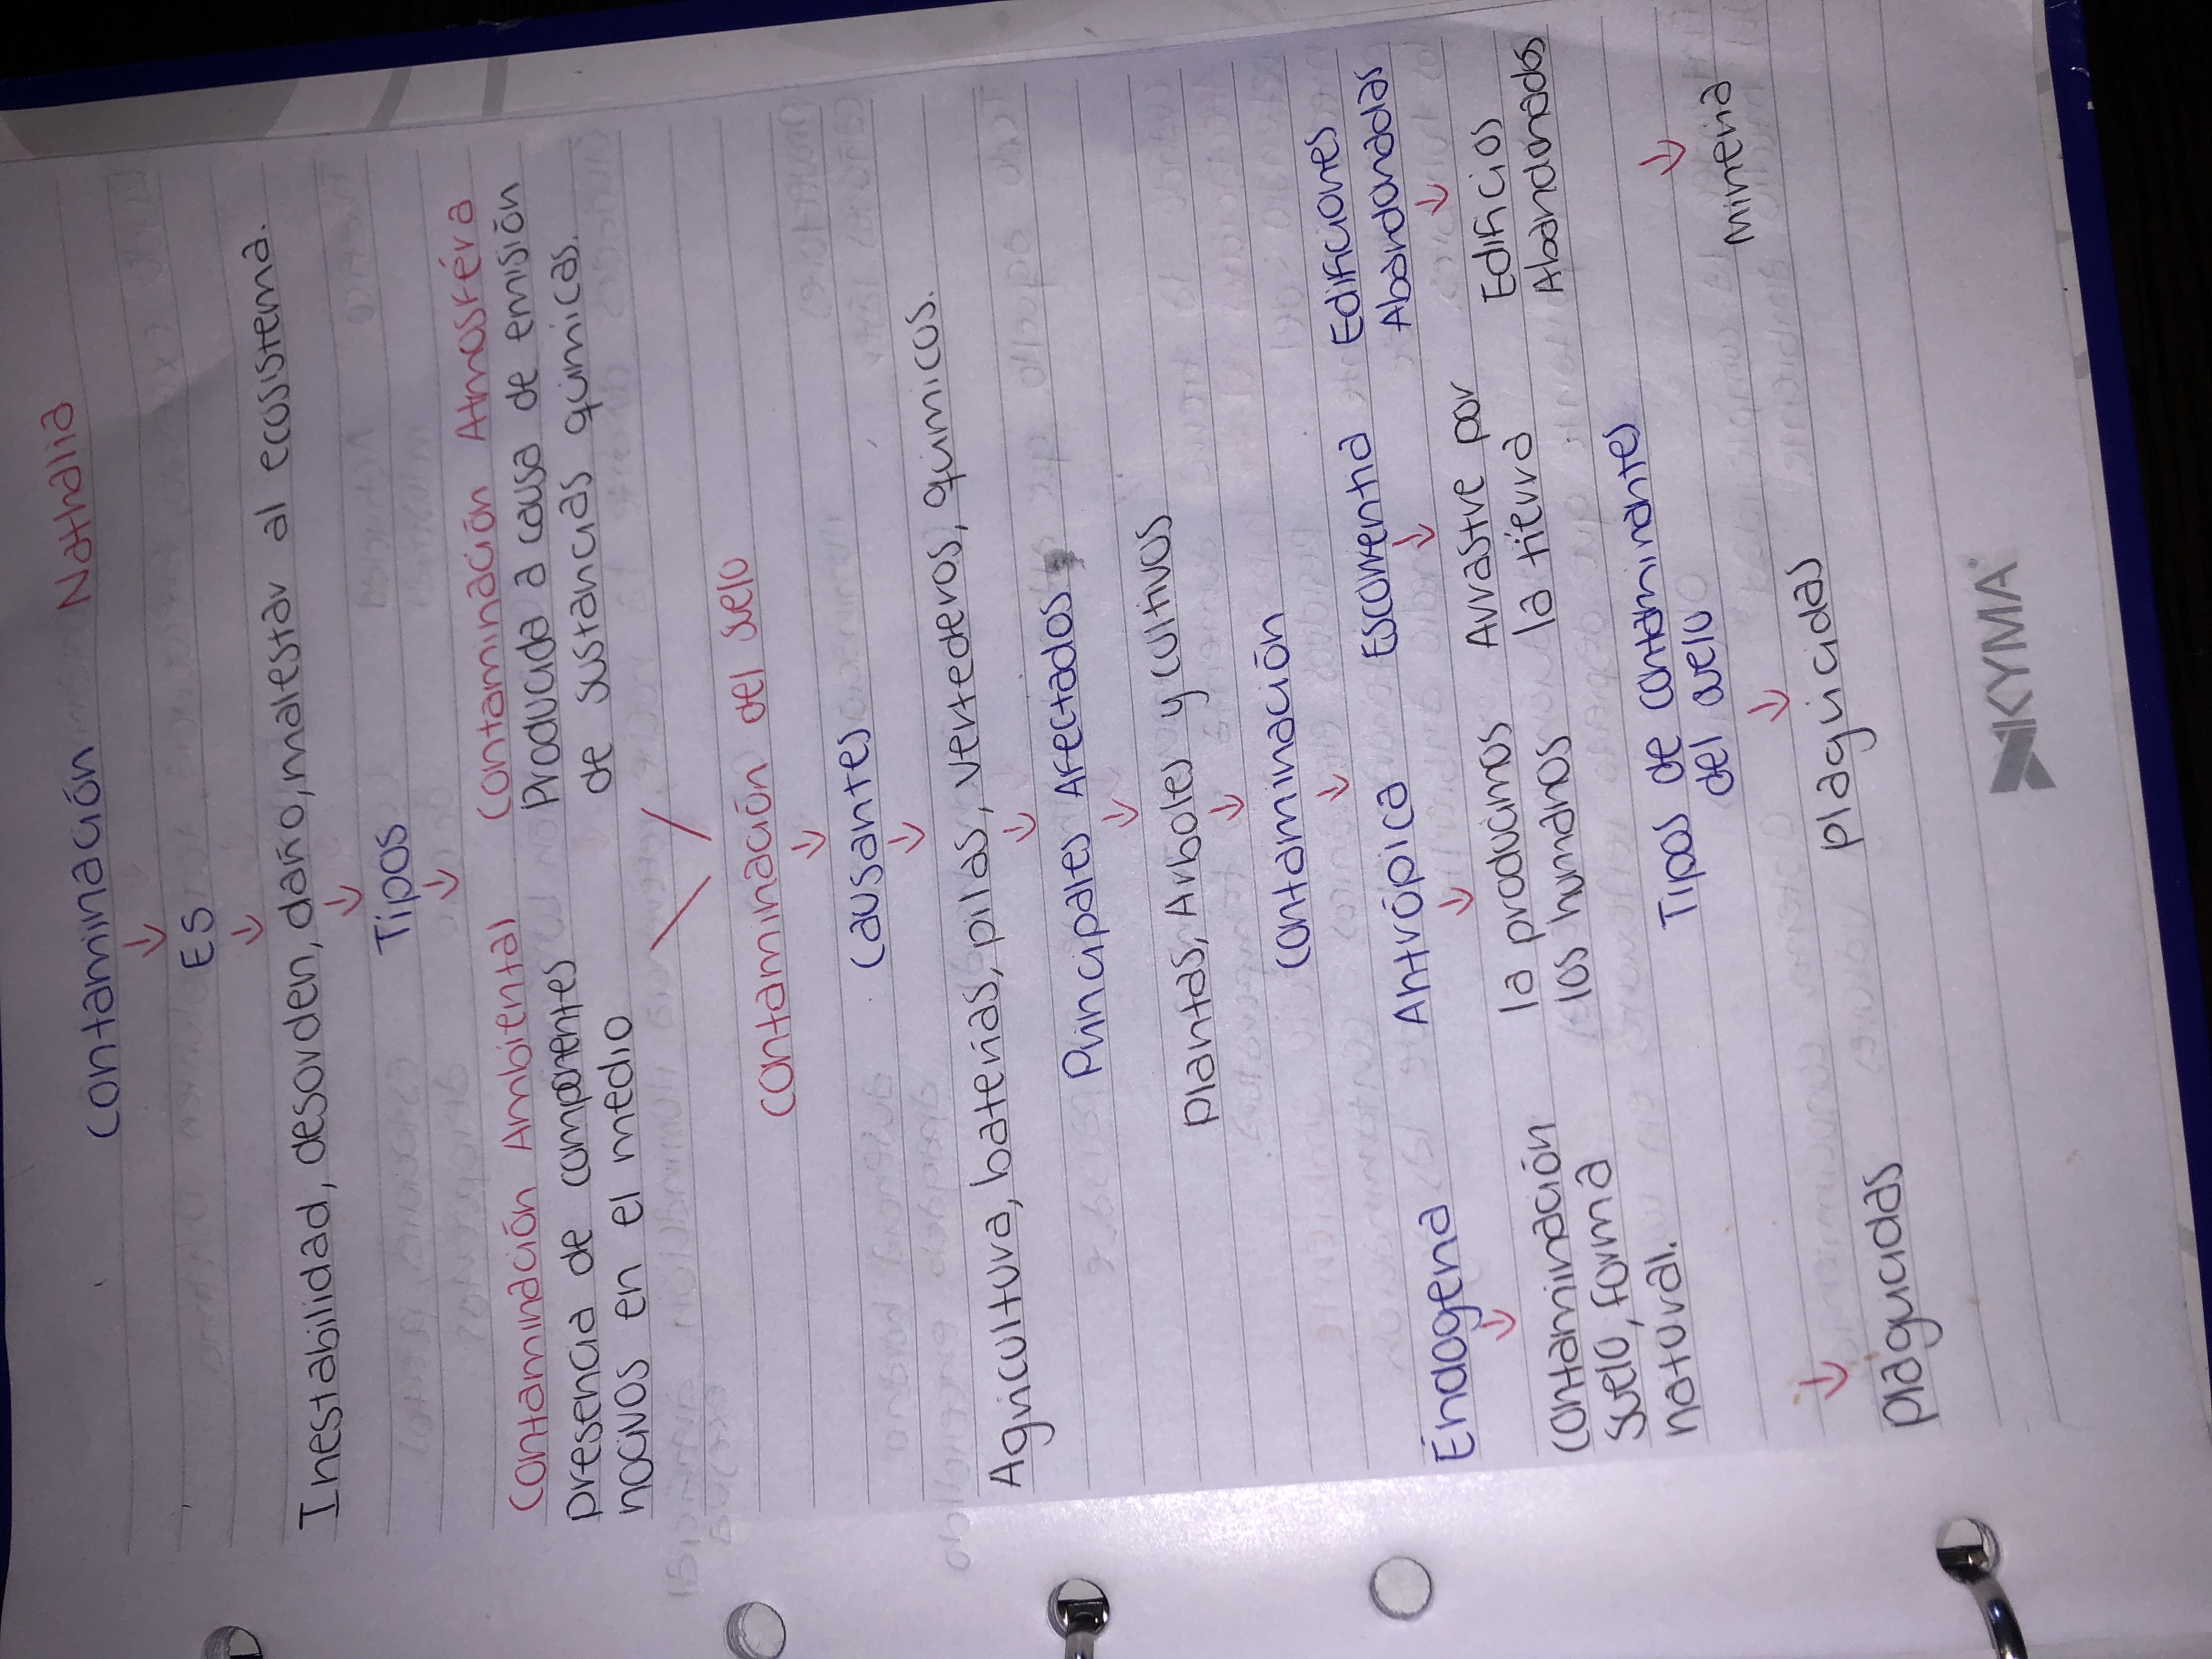 Contaminación Nathalia
ES
Inestabilidad, desorden, daño, malestar al ecosistema.
Tipos
Contaminación Ambiental Contaminación Atmosféra
presencia de componentes Producida a causa de emisión
nocivos en el medio de sustancias químicas.
Contaminación del suelo
Causantes
Agricultura, baterías, pilas, vertederos, químicos.
Principales Afectados
Plantas, Arboles y cultivos
Contaminación
Éndogena Antrópica Escorrentia Edificiones
Abandonadas
Contaminación la producimos Arrastre por Edificios
suelo, forma los humanos la tierra Abandonados
natural.
Tipos de contaminantes
del suelo
plaguicidas plaguicidas minería
KYMA